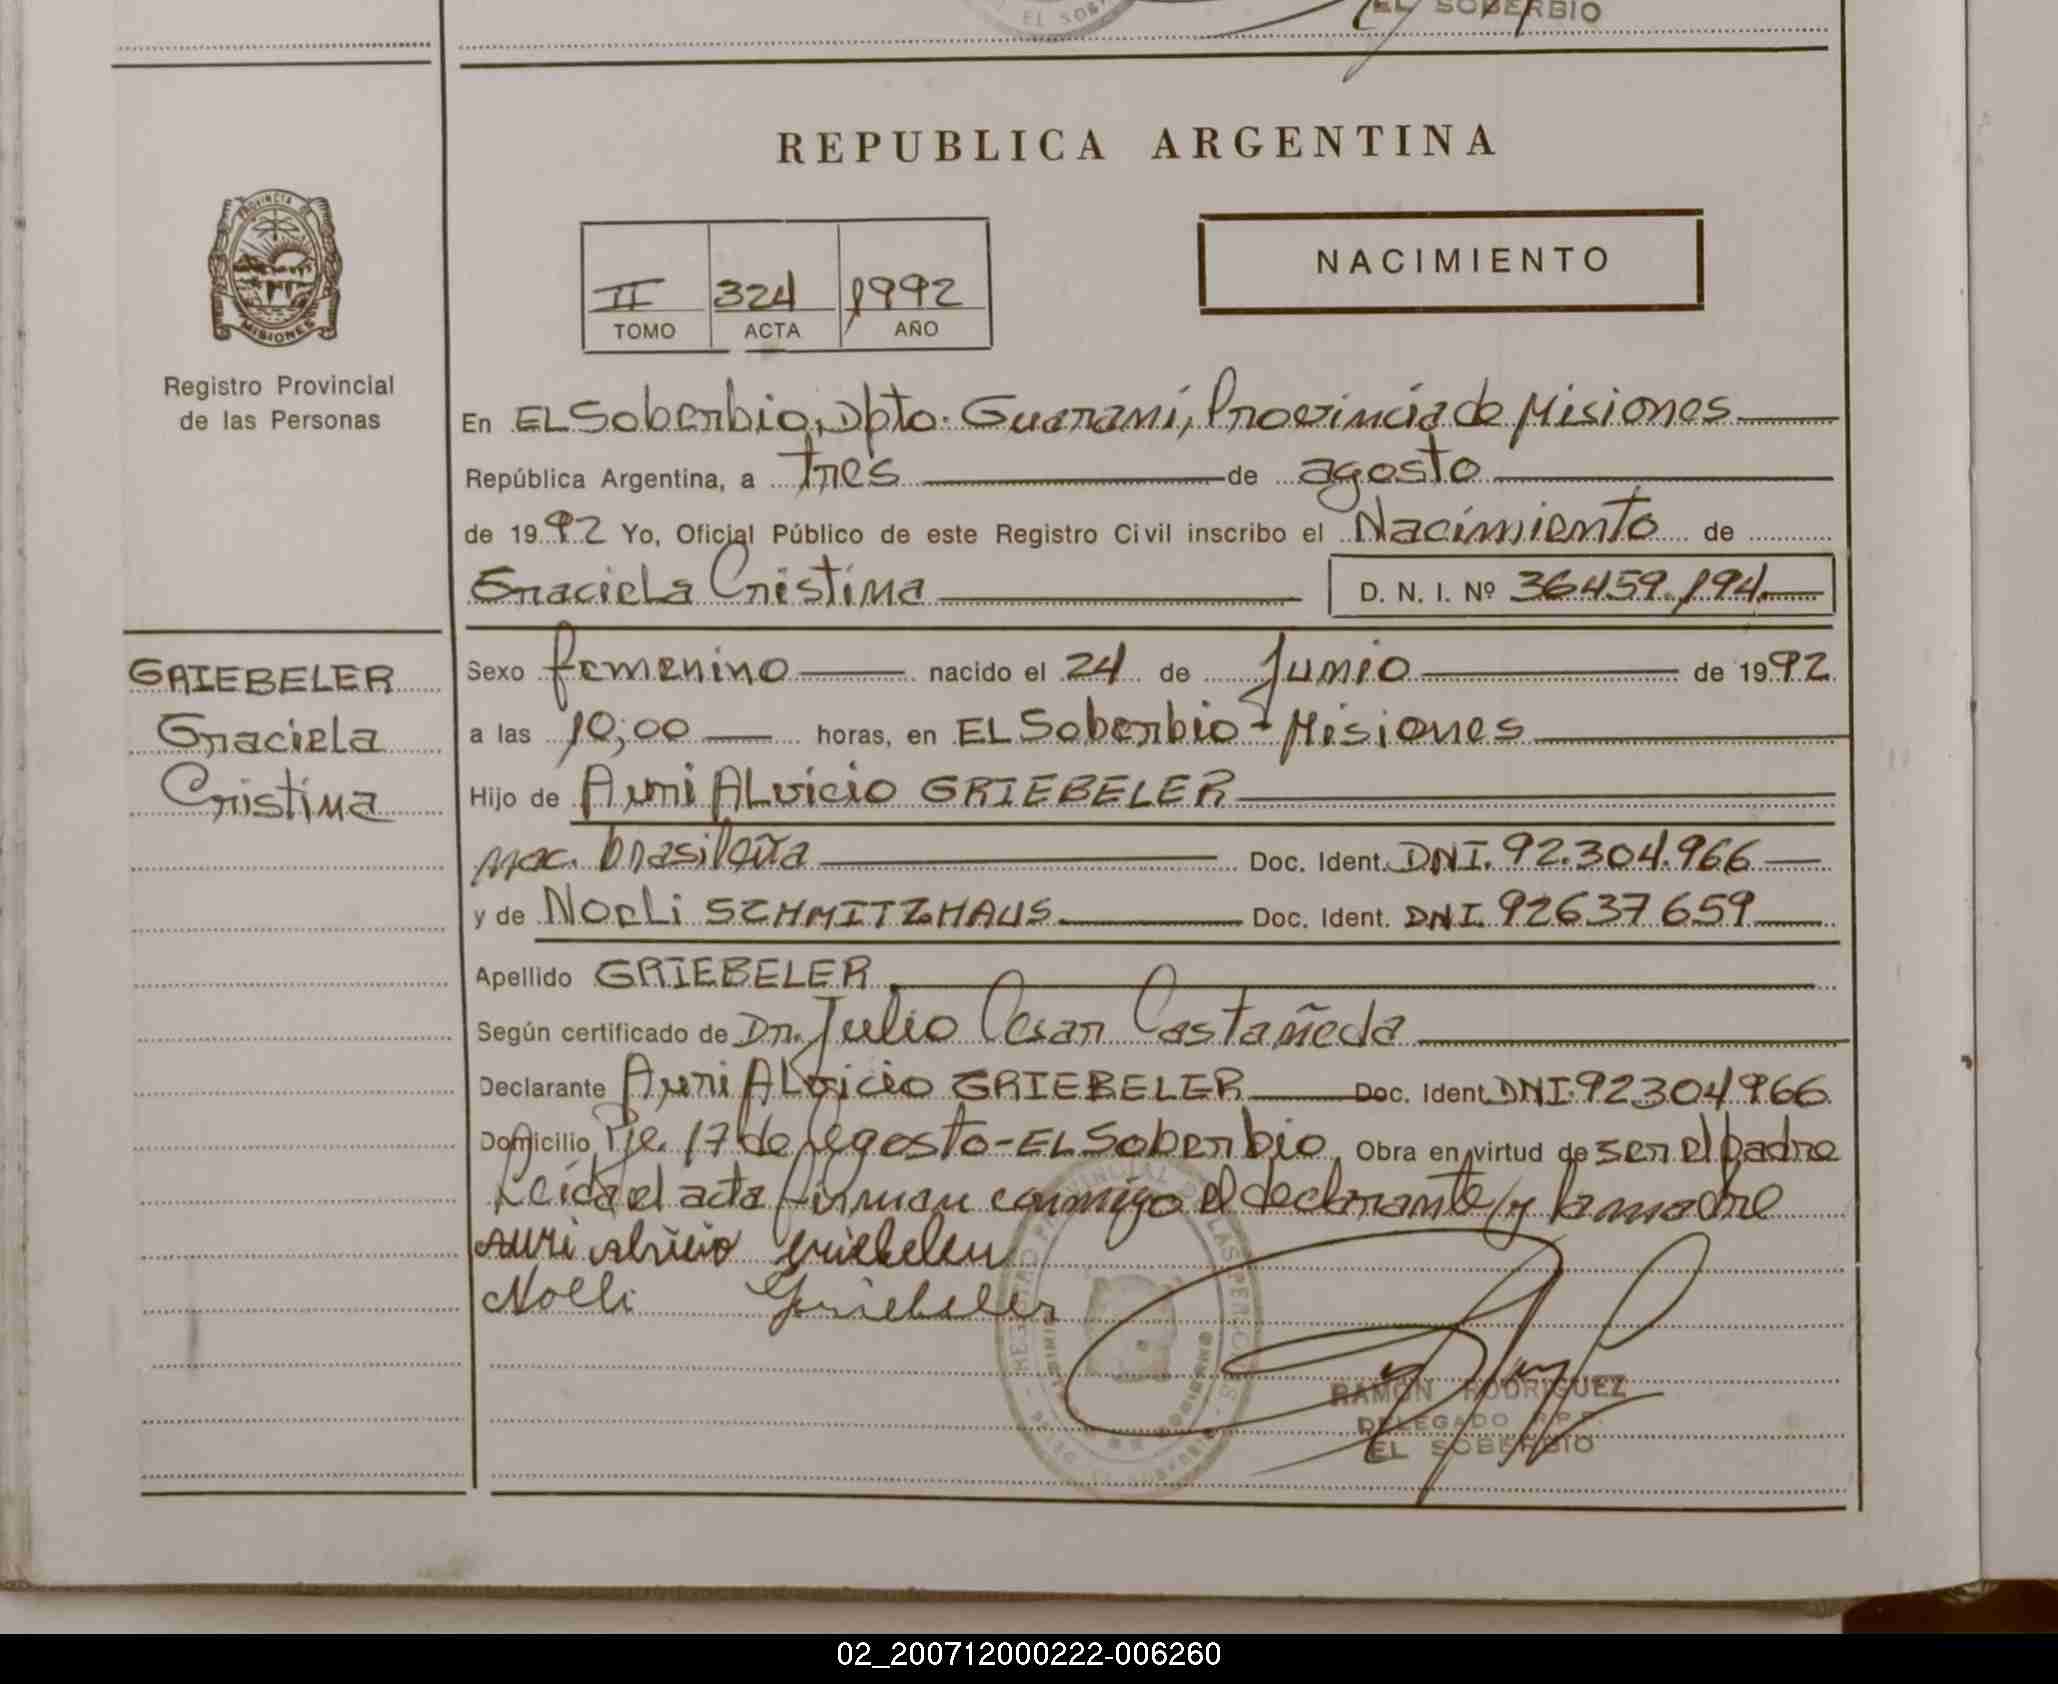 EL SOBERBIO
REPUBLICA ARGENTINA
PROVINCIA DE
MISIONES
Registro Provincial
de las Personas
II 324 1992
TOMO ACTA AÑO
NACIMIENTO
En EL Soberbio, Dpto. Guaraní, Provincia de Misiones
República Argentina, a tres de agosto
de 1992 Yo, Oficial Público de este Registro Civil inscribo el Nacimiento de
Graciela Cristina D. N. I. Nº 36459.194.
GRIEBELER
Graciela
Cristina
Sexo femenino nacido el 24 de Junio de 1992
a las 10,00 horas, en EL Soberbio - Misiones
Hijo de Auri ALvicio GRIEBELER
nac. brasileña Doc. Ident. DNI. 92.304.966
y de Noeli SCHMITZHAUS Doc. Ident. DNI. 92637659
Apellido GRIEBELER
Según certificado de Dr. Julio Cesar Castañeda
Declarante Auri ALvicio GRIEBELER Doc. Ident. DNI. 92304966
Domicilio Pje. 17 de Agosto - EL Soberbio Obra en virtud de ser el padre
Leída el acta firman conmigo el declarante y la madre
Auri Alvicio Griebeler
Noeli Griebeler
REGISTRO PROVINCIAL DE LAS PERSONAS
RAMON RODRIGUEZ
DELEGADO R.P.P.
EL SOBERBIO
02_200712000222-006260